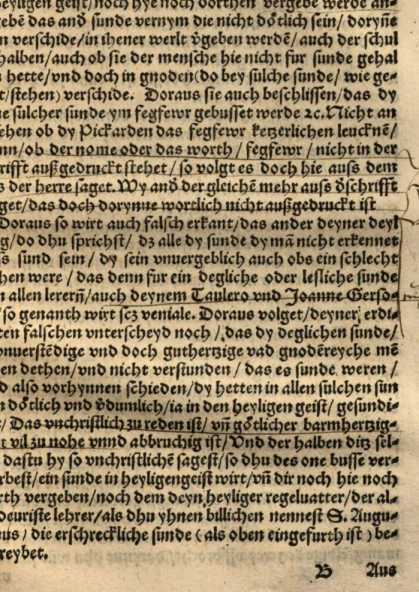 heyligen geist/ noch hye noch dorthen vergebē werde an-
gebē das and̄ sunde vernym die nicht dōtlich sein/ doryñe
n verschide/ in ihener werlt v̄geben werdē/ auch der schul
halben/ auch ob sie der mensche hie nicht fur sunde gehal
n hette/ vnd doch in gnoden (do bey sülche sunde/ wie ge-
t/ stehen) verschide. Doraus sie auch beschlissen/ das dy
ne sülcher sunde ym fegfewr gebusset werde ꝛc. Nicht an
ehen ob dy Pickarden das fegfewr ketzerlichen leucknē/
nn/ ob der nome oder das worth/ fegfewr/ nicht in der
rifft außgedruckt stehet/ so volgt es doch hie auſs dem
s der herre saget. Wy and̄ der gleichē mehr auſs d̄ schrifft
get/ das doch dorynne wortlich nicht außgedruckt ist
Doraus so wirt auch falsch erkant/ das ander deyner deyl
g/ do dhu sprichst/ dz alle dy sunde dy mā nicht erkennet
s sund sein/ dy sein vnuergeblich auch obs ein schlecht
hen were/ das denn fur ein degliche oder lesliche sunde
n allen lerern/ auch deynem Taulero vnd Joanne Gerso-
/ so genanth wirt scz veniale. Doraus volget/ deyner erdi-
ten falschen vnterscheyd noch/ das dy deglichen sunde/
onuerstēdige vnd doch guthertzige vad gnodēreyche mē
en dethen/ vnd nicht verstunden/ das es sunde weren/
d also vorhynnen schieden/ dy hetten in allen sülchen sün
n dōtlich vnd v̄dumlich/ ia in den heyligen geist/ gesundi-
/ Das vnchristlich zu reden ist/ vñ gōtlicher barmhertzig-
t vil zu nohe vnnd abbruchig ist/ Vnd der halben ditz sel-
dastu hy so vnchristlichē sagest/ so dhu des one busse ver-
rbest/ ein sunde in heyligengeist wirt/ vñ dir noch hie noch
rth vergeben/ noch dem deyn heyliger regeluatter/ der al-
oeuriste lehrer/ als dhu yhnen billichen nennest S. Augu-
nus/ die erschreckliche sunde (als oben eingefurth ist) be-
reybet.
B Aus